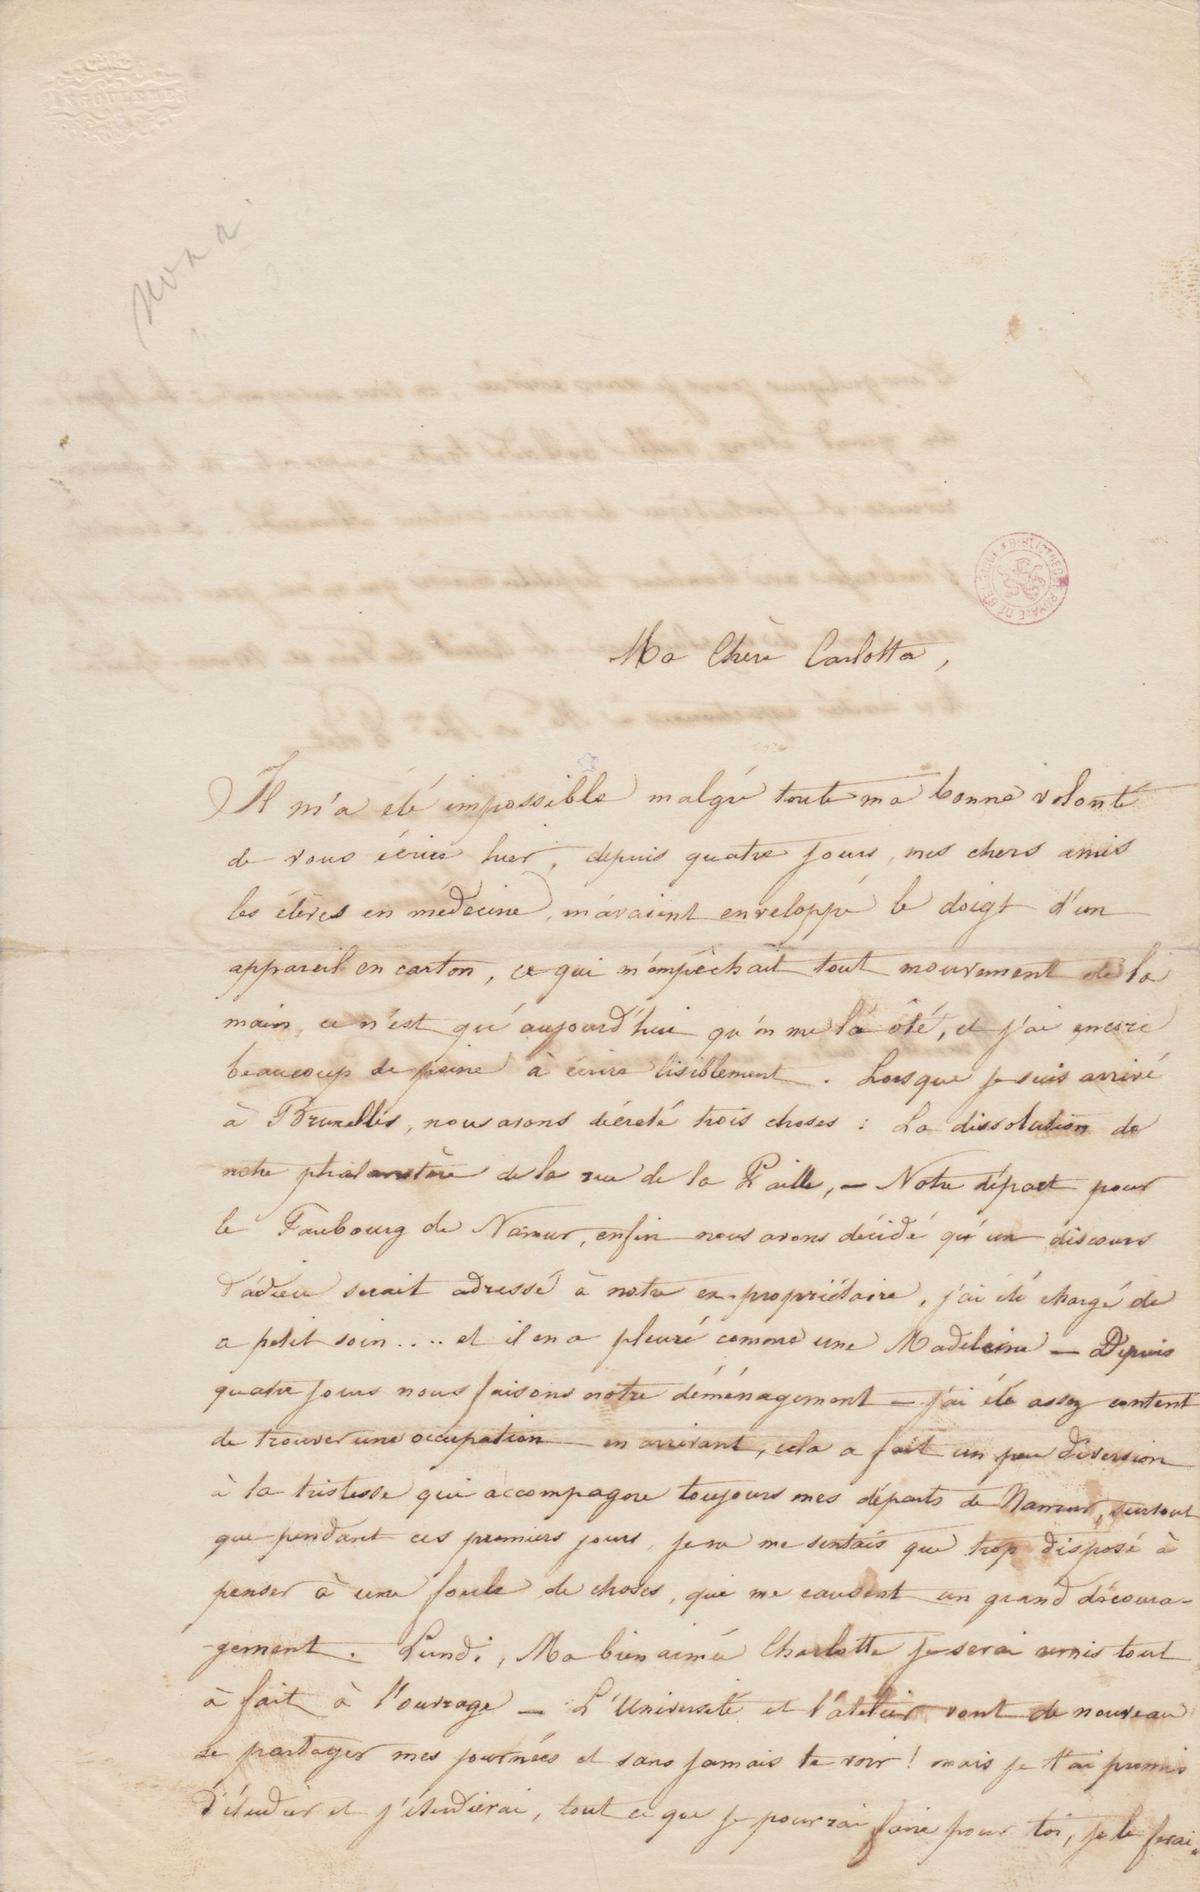 ANGOULEME
BIBLIOTHECA ROYALE DE BELGIQUE
Ma Chère Carlotta,
Il m'a été impossible malgré toute ma bonne volonté
de vous écrire hier, depuis quatre jours, mes chers amis
les élèves en médecine, m'avaient enveloppé le doigt d'un
appareil en carton, ce qui m'empêchait tout mouvement de la
main, ce n'est qu'aujourd'hui qu'on me l'a ôté, et j'ai encore
beaucoup de peine à écrire lisiblement. Lorsque je suis arrivé
à Bruxelles, nous avons décrété trois choses : La dissolution de
notre phalanstère de la rue de la Paille, — Notre départ pour
le Faubourg de Namur, enfin nous avons décidé qu'un discours
d'adieu serait adressé à notre ex-propriétaire, j'ai été chargé de
a petit soin .... et il en a pleuré comme une Madeleine — Depuis
quatre jours nous faisons notre déménagement — j'ai été assez content
de trouver une occupation en arrivant, cela a fait un peu diversion
à la tristesse qui accompagne toujours mes départs de Namur, surtout
que pendant ces premiers jours, je ne me sentais que trop disposé à
penser à une foule de choses, qui me causent un grand découra-
-gement. Lundi, Ma bien aimée Charlotte je serai remis tout
à fait à l'ouvrage — L'Université et l'atelier vont de nouveau
se partager mes journées et sans jamais te voir ! mais je t'ai promis
d'étudier et j'étudierai, tout ce que je pourrai faire pour toi, je le ferai.